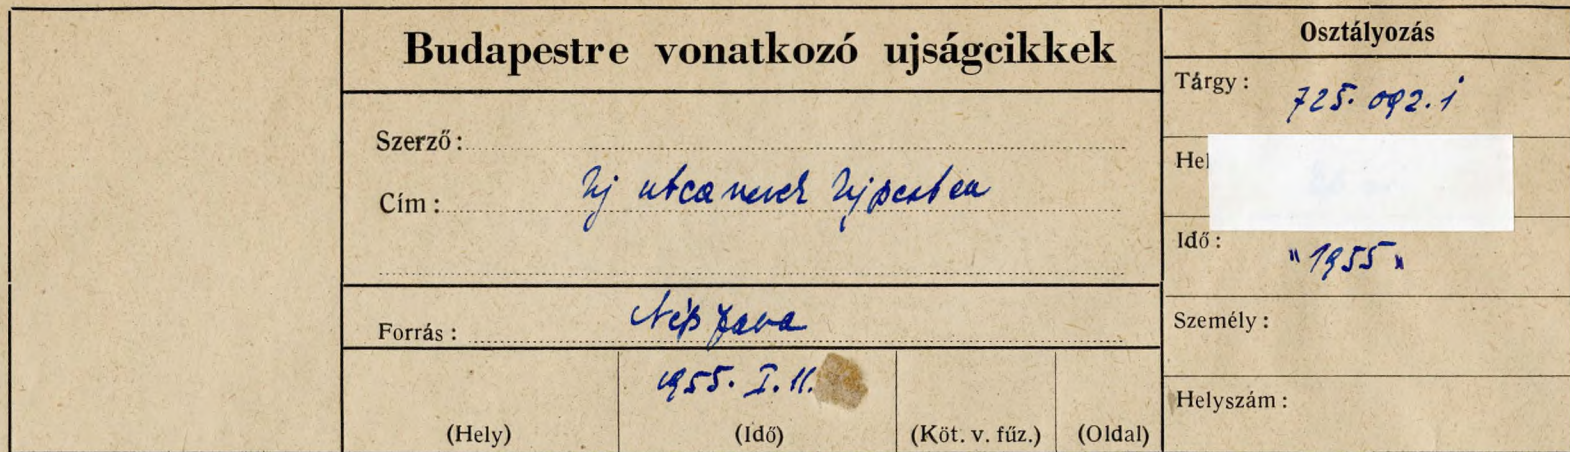 Budapestre vonatkozó ujságcikkek
Szerző:
Cím: Uj utcanevek Ujpesten
Forrás: Népszava
1955. I. 11.
(Hely) (Idő) (Köt. v. füz.) (Oldal)
Osztályozás
Tárgy: 725.092.1
Hel
Idő: "1955"
Személy:
Helyszám: